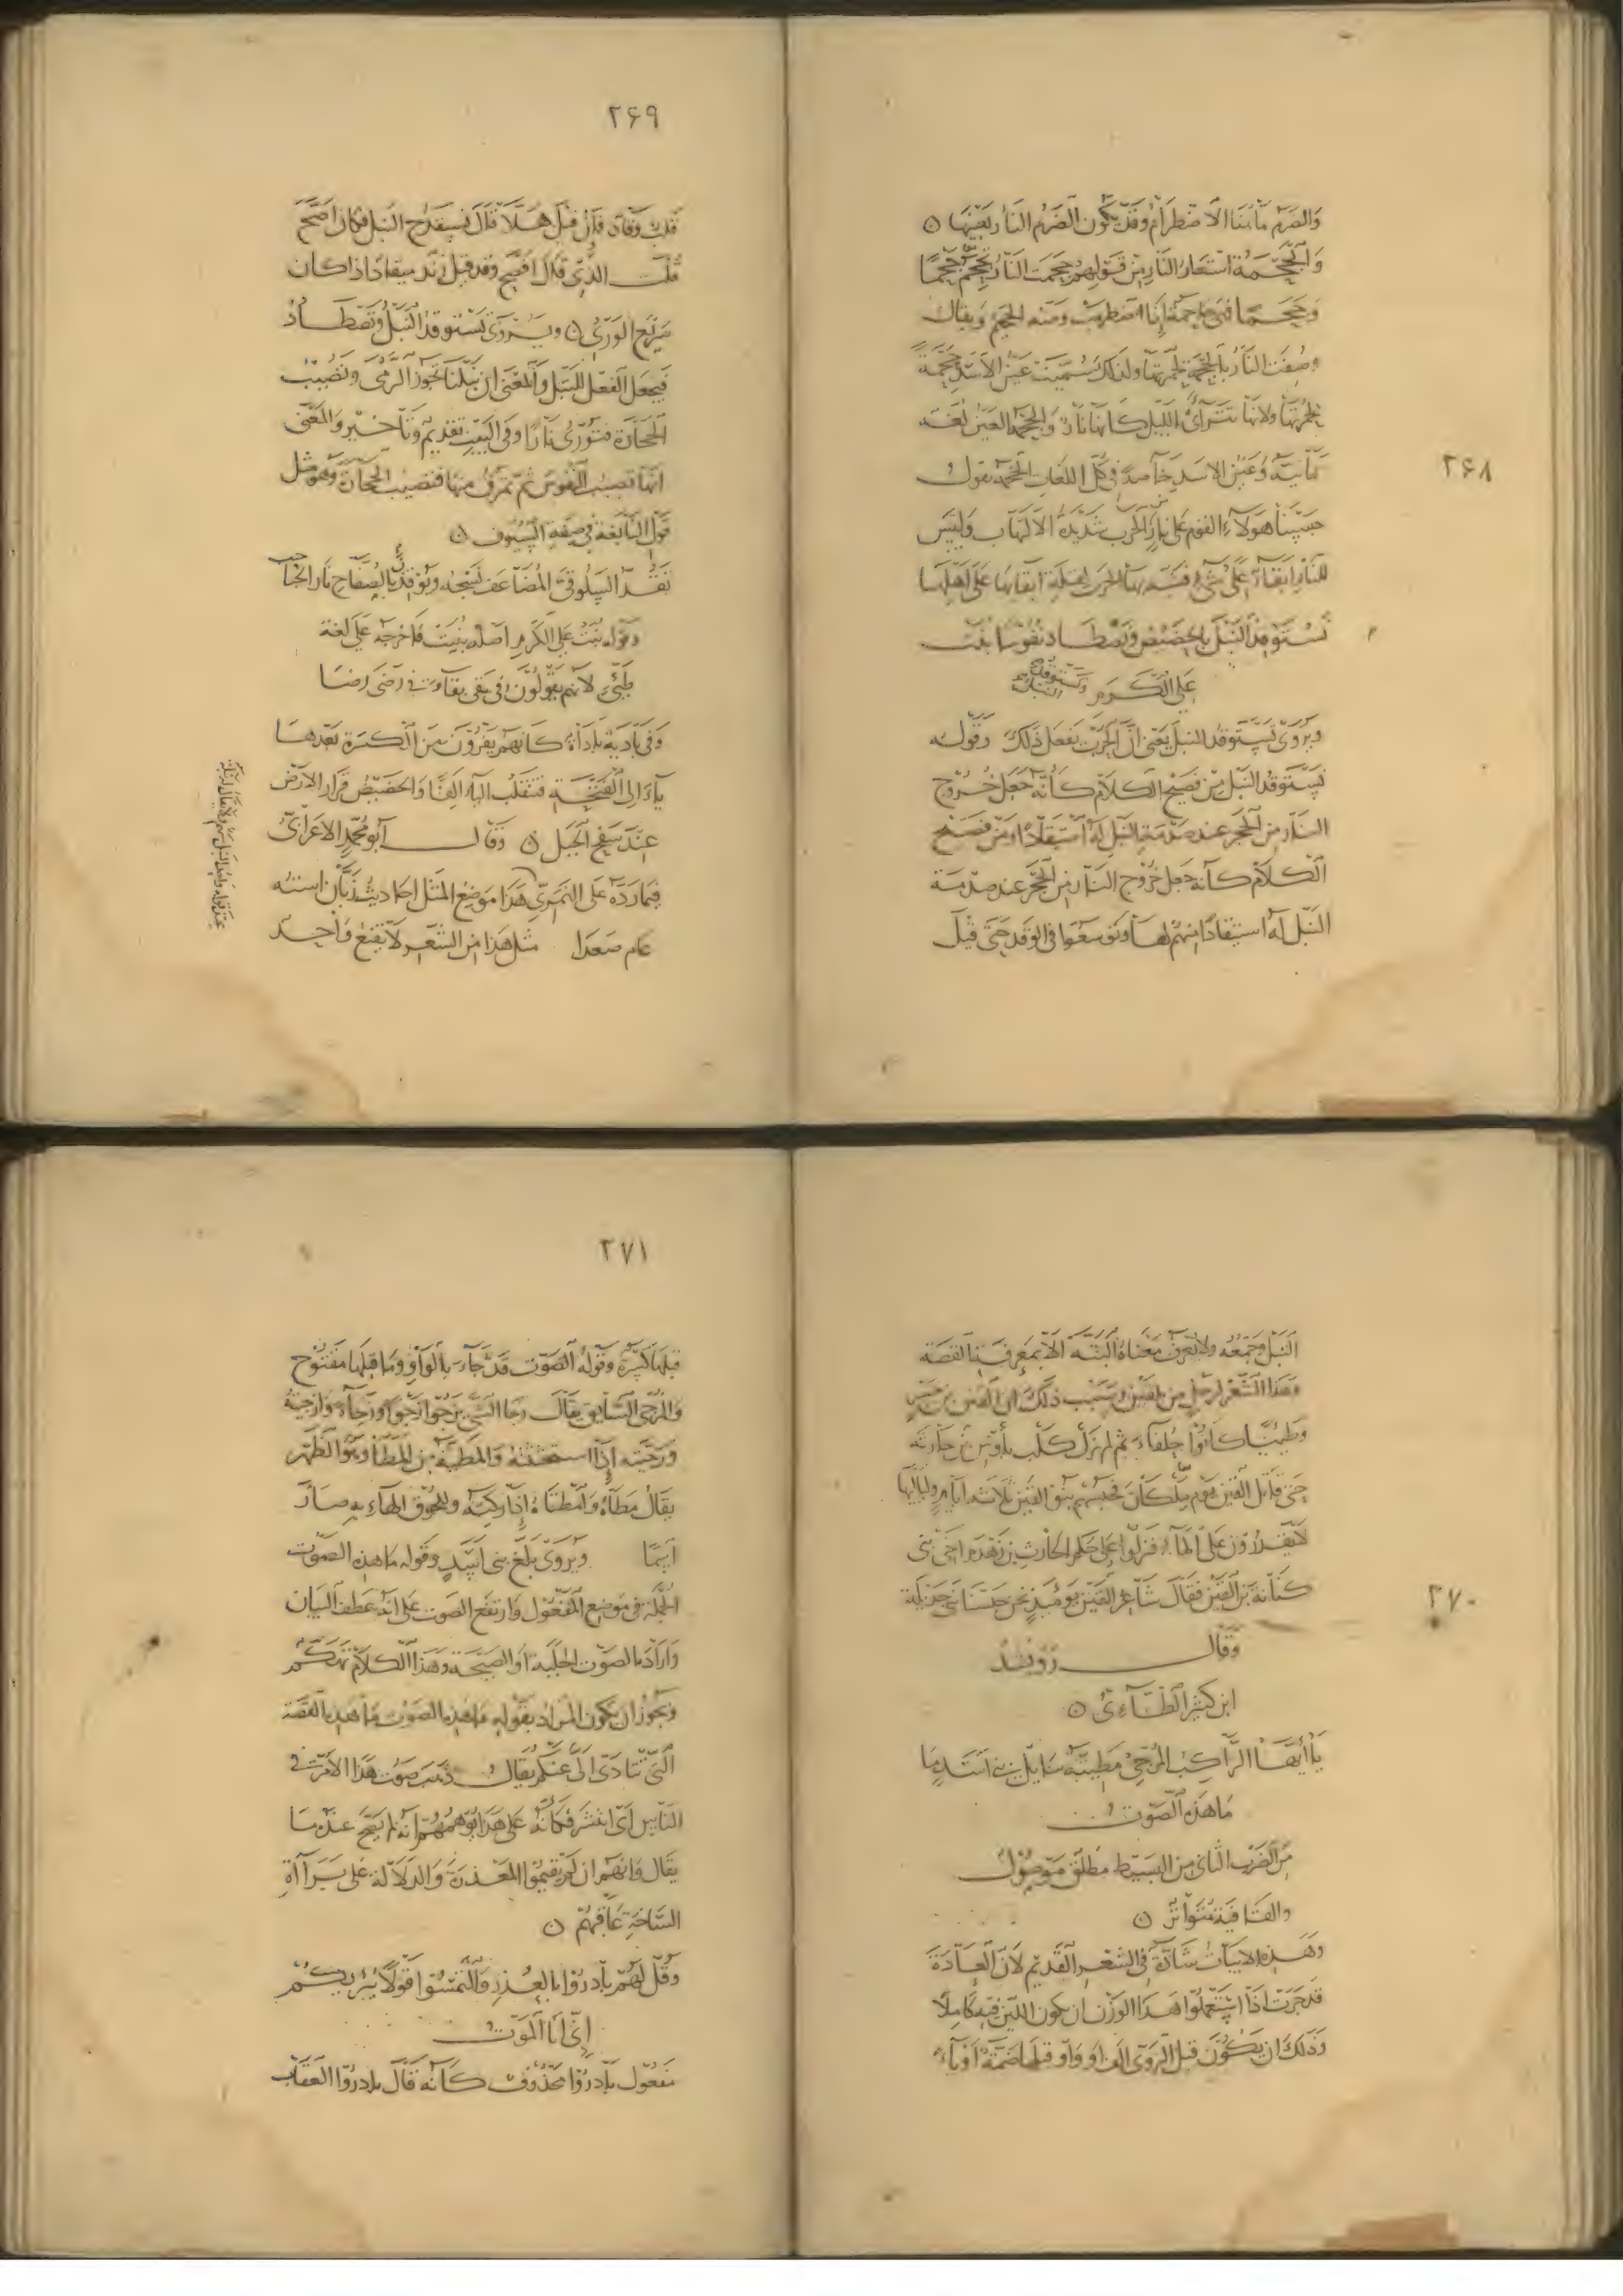 ٢۶٨
وَالضرم مابنا الاضطرام وقد يكون الضرم النار بعينها ه
والجحمة استعار النار من قولهم جحمت النار تجحم جحمًا
وجحمًا فهي جاحمة اذا اضطرمت ومنه الجحيم ويقال
وصفت النار بالجحمة لحمرتها ولذلك سميت عين الاسد جحمة
لحمرتها ولانها تتراءى بالليل كانها نار والجحمة العين لغة
يمانية وعين الاسد خاصة في كل اللغات الجحمة يقول
حبسنا هولاء القوم على نار الحرب شديدة الالتهاب وليس
للنار ابقاء على شيء فشبه بها الحرب لقلة ابقائها على اهلها
نستوقد النبل بالحضيض ونصطاد نفوسا بنت
على الكرم
ويروى تستوقد النبل يعني ان الحرب تفعل ذلك وقوله
نستوقد النبل من فصيح الكلام كأنه جعل خروج
النار من الحجر عند صدمة النبل له استيقادا ومن فصيح
الكلام كأنه جعل خروج النار من الحجر عند صدمة
النبل له استيقادا منهم لها وتوسعوا في الوقد حتى قيل
٢۶٩
قلت وقاد فان قيل هلا قال نستقدح النبل فكان اصح
قلت الذي قال افصح وقد قيل زند ميقاد اذا كان
سريع الوري ه ويروى تستوقد النبل وتصطاد
فيجعل الفعل للنبل والمعنى ان نبلنا تجوز الرمى وتصيب
الحجارة فتورى نارا وفي البيت تقديم وتاخير والمعنى
انها تصيب النفوس ثم تمرق منها فتصيب الحجارة وهو مثل
قول النابغة في صفة السيوف ه
تقد السلوقى المضاعف نسجه ويوقدن بالصفاح نار الحباحب
وقوله بنت على الكرم اصله بنيت فاخرجه على لغة
طيئ لانهم يقولون في بقى بقا وفي رضى رضا
وفي بادية باداة كانهم يفرون من الكسرة بعدها
ياء الى الفتحة فتنقلب الياء الفا والحضيض قرار الارض
عند سفح الجبل ه وقال ابو محمد الاعرابي
فيما رده على النمري هذا موضع المثل احاديث زبان استه
عام صعدا مثل هذا من الشعر لا يقنع واحد
٢٧٠
النبل وجمعه ولا يعرف معناه البتة الا بمعرفة القصة
وهذا الشعر لرجل من بلقين وسبب ذلك ان القين بن جسر
وطيئا كانوا حلفاء ثم لم تزل كلب باوس بن حارثة
حتى قاتل القين يوم ملكان فحبسهم بنو القين ثلاثة ايام ولياليها
لا يقدرون على الماء فنزلوا على حكم الحارث بن زهدم اخي بني
كنانة بن القين فقال شاعر القين يومئذ نحن حبسنا بني جديلة
وقال رويشد
ابن كثير الطائي ه
يا أيها الراكب المزجي مطيته سايل بني اسد ما
ما هذه الصوت
من الضرب الثاني من البسيط مطلق موصول
والقافية متواتر ه
وهذه الابيات شاذة في الشعر القديم لان العادة
قد جرت اذا استعملوا هذا الوزن ان يكون اللين فيه كاملا
وذلك ان يكون قبل الروى الف او واو قبلها ضمة او ياء
٢٧١
قبلها كسرة وقوله الصوت قد جاء بالواو وما قبلها مفتوح
والمزجى السايق يقال زجا الشيء يزجو زجوا وزجاء وازجيته
وزجيته اذا استحثثته والمطية من المطا وهو الظهر
يقال مطاه وامتطاه اذا ركبه وللحوق الهاء به صار
اسما ويروى بلغ بني اسد وقوله ما هذه الصوت
الجملة في موضع المفعول وارتفع الصوت على انه عطف البيان
واراد بالصوت الجلبة او الصيحة وهذا الكلام تهكم
ويجوز ان يكون المراد بقوله ما هذه الصوت ما هذه القصة
التي تتادى الى عنكم يقال ذهب صوت هذا الامر في
الناس اى انتشر فكانه على هذا يوهمهم انه لم يصح عنده ما
يقال وانهم ان لم يقيموا المعذرة والدلالة على براءة
الساحة عاقبهم ه
وقل لهم بادروا بالعذر والتمسوا قولا يبريكم
انى انا الموت
مفعول بادروا محذوف كأنه قال بادروا العقاب